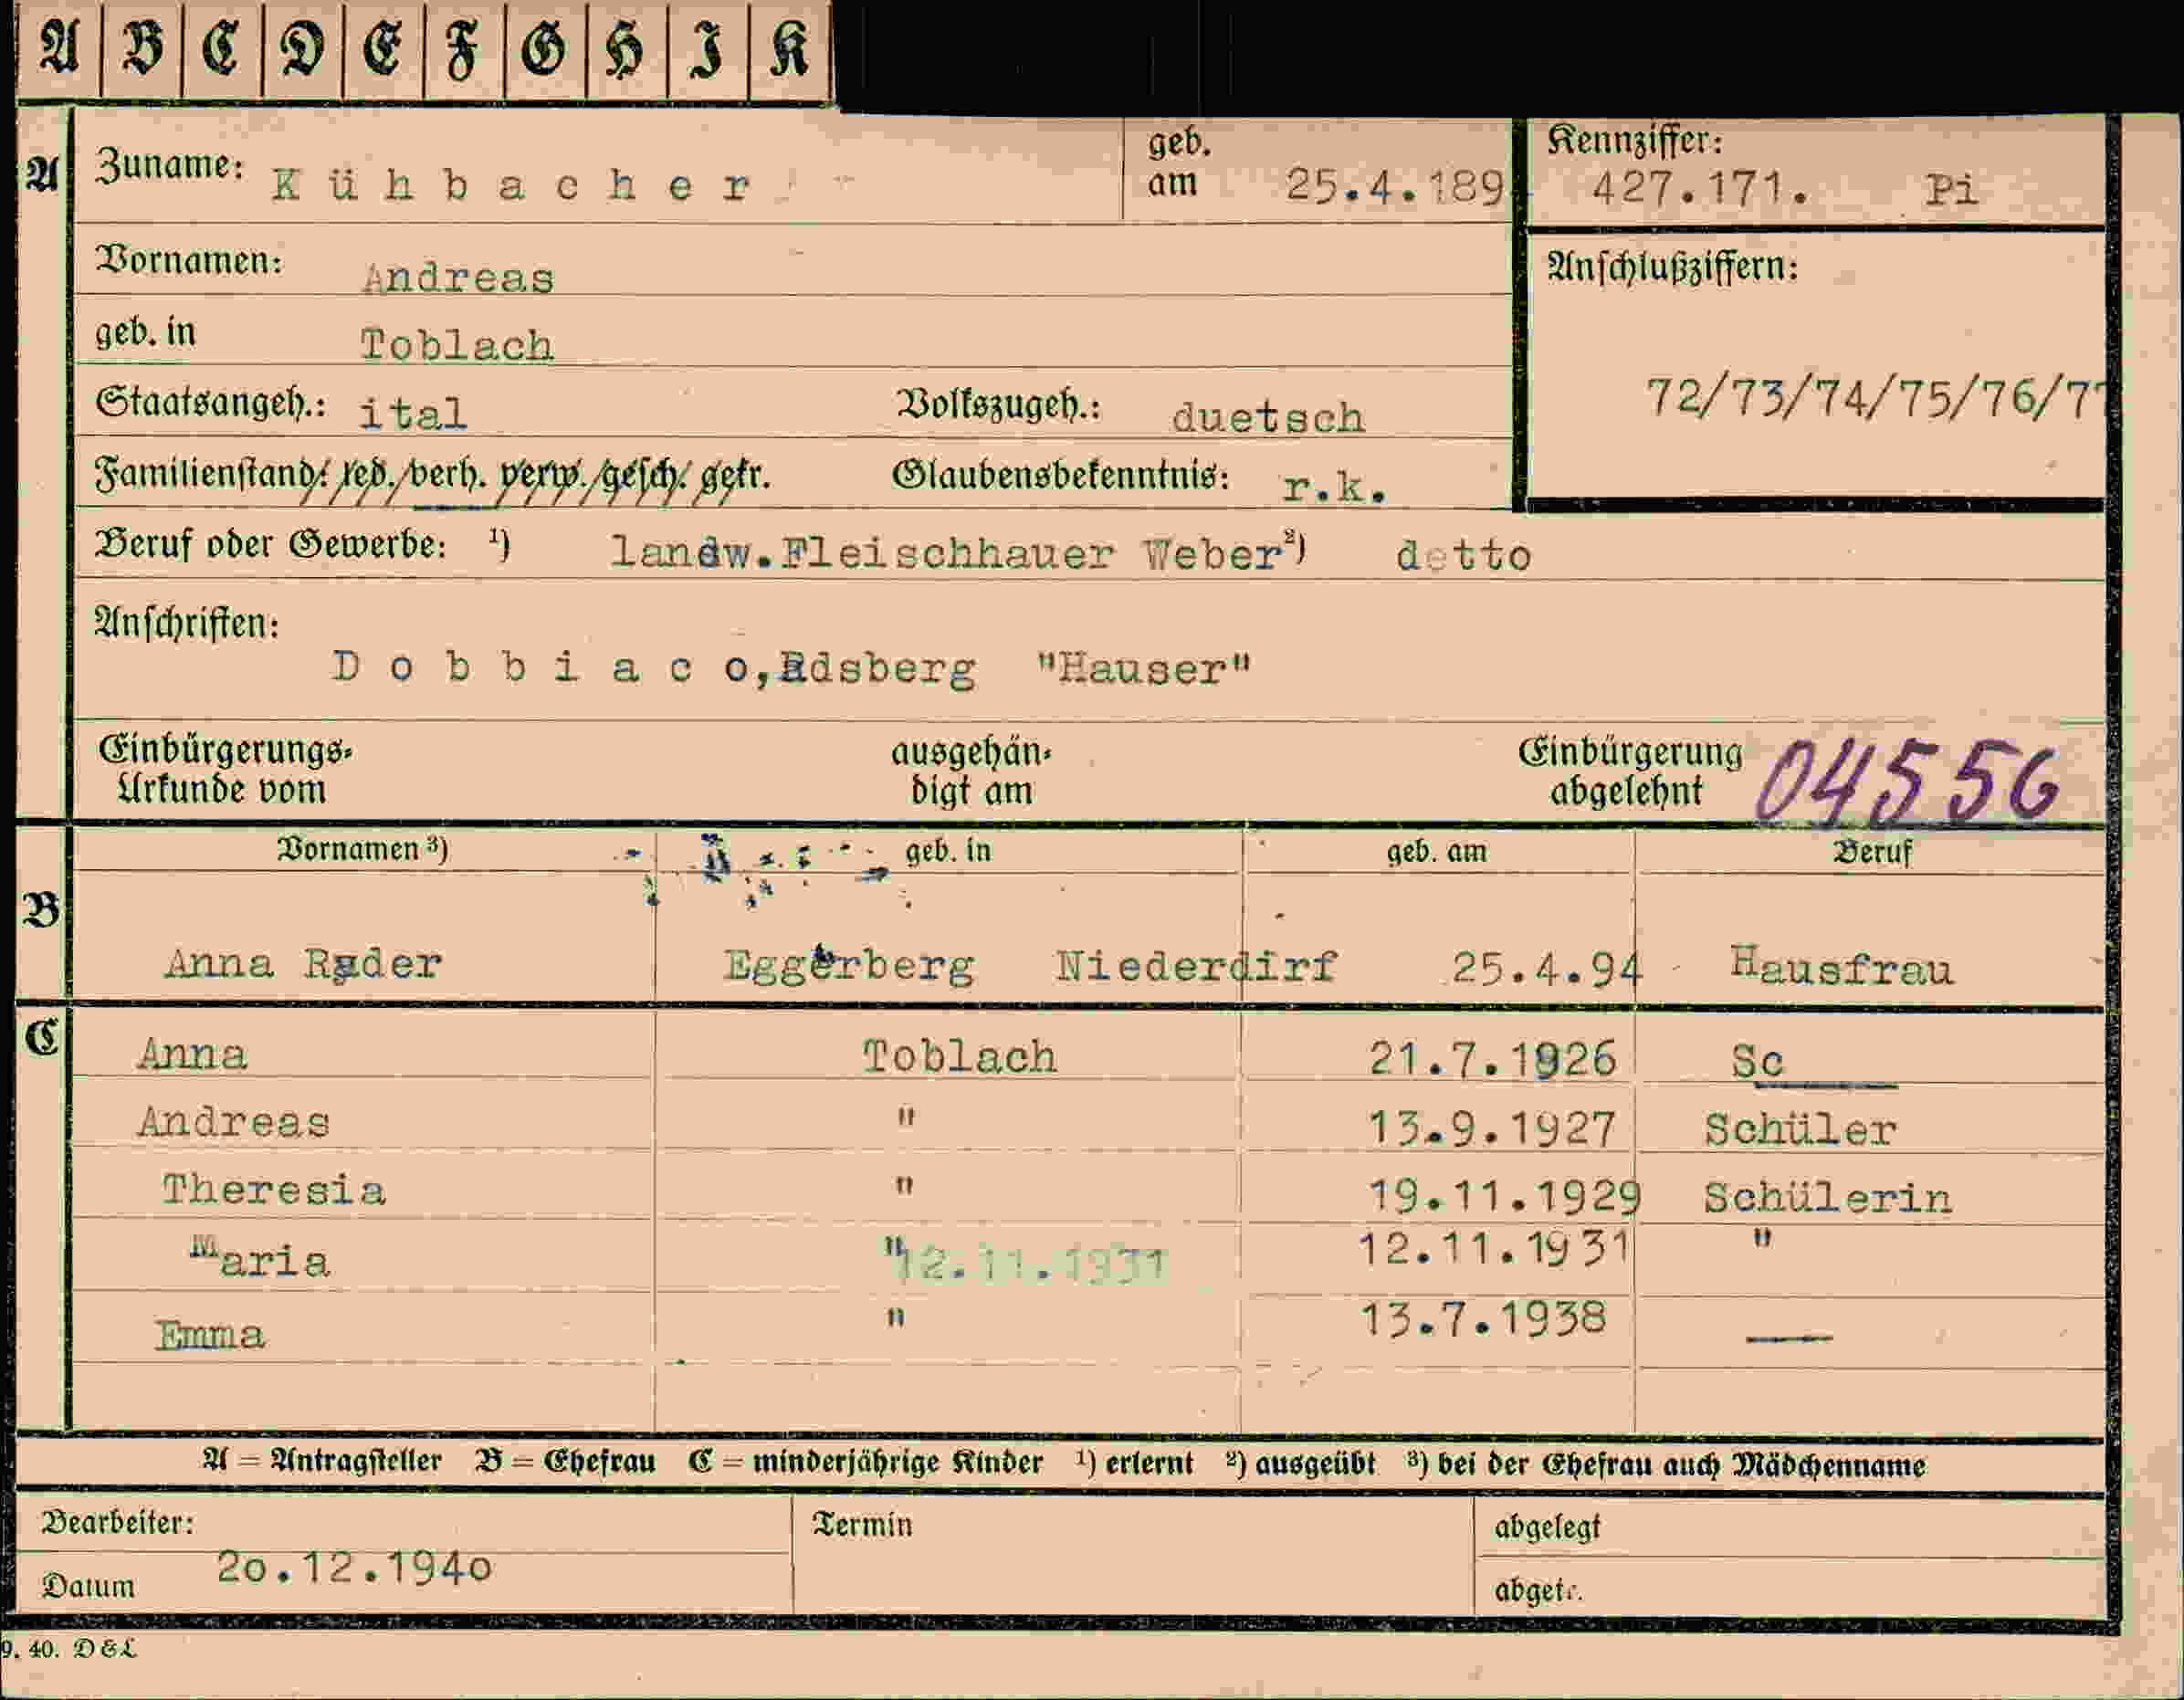 A B C D E F G H I K
A Zuname: Kühbacher geb. am 25.4.189 Kennziffer: 427.171. Pi
Vornamen: Andreas Anschlußziffern:
geb. in Toblach
72/73/74/75/76/77
Staatsangeh.: ital Volkszugeh.: duetsch
Familienstand: led./verh. verw./gesch. getr. Glaubensbekenntnis: r.k.
Beruf oder Gewerbe: ¹) landw.Fleischhauer Weber ²) detto
Anschriften:
Dobbiaco, "Hauser"
Einbürgerungs- ausgehän- Einbürgerung
Urkunde vom digt am abgelehnt 04556
Vornamen ³) geb. in geb. am Beruf
B
Anna Eggerberg Niederdirf 25.4.94 Hausfrau
C Anna Toblach 21.7.1926 Sc
Andreas " 13.9.1927 Schüler
Theresia " 19.11.1929 Schülerin
Maria " 12.11.1931 12.11.1931 "
Emma " 13.7.1938 —
A = Antragsteller B = Ehefrau C = minderjährige Kinder ¹) erlernt ²) ausgeübt ³) bei der Ehefrau auch Mädchenname
Bearbeiter: Termin abgelegt
Datum 20.12.1940 abgetr.
9. 40. D&L